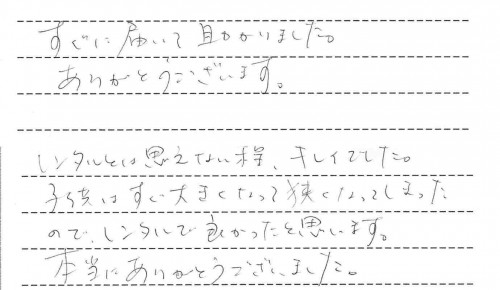 すぐに届いて助かりました。
ありがとうございます。
レンタルとは思えない程、キレイでした。
子供はすぐ大きくなって狭くなってしまった
ので、レンタルで良かったと思います。
本当にありがとうございました。